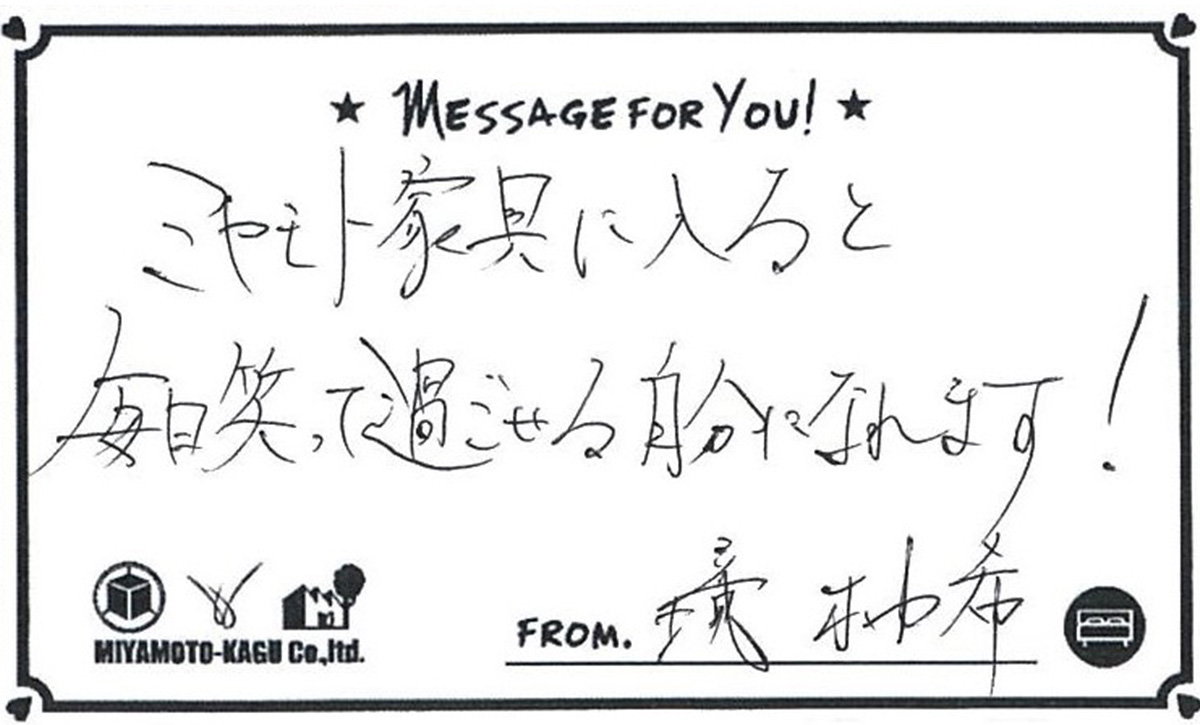 ★ MESSAGE FOR YOU! ★
ミヤモト家具に入ると
毎日笑って過ごせる自分になれます!
MIYAMOTO-KAGU Co.,ltd.
FROM. 境 柚希